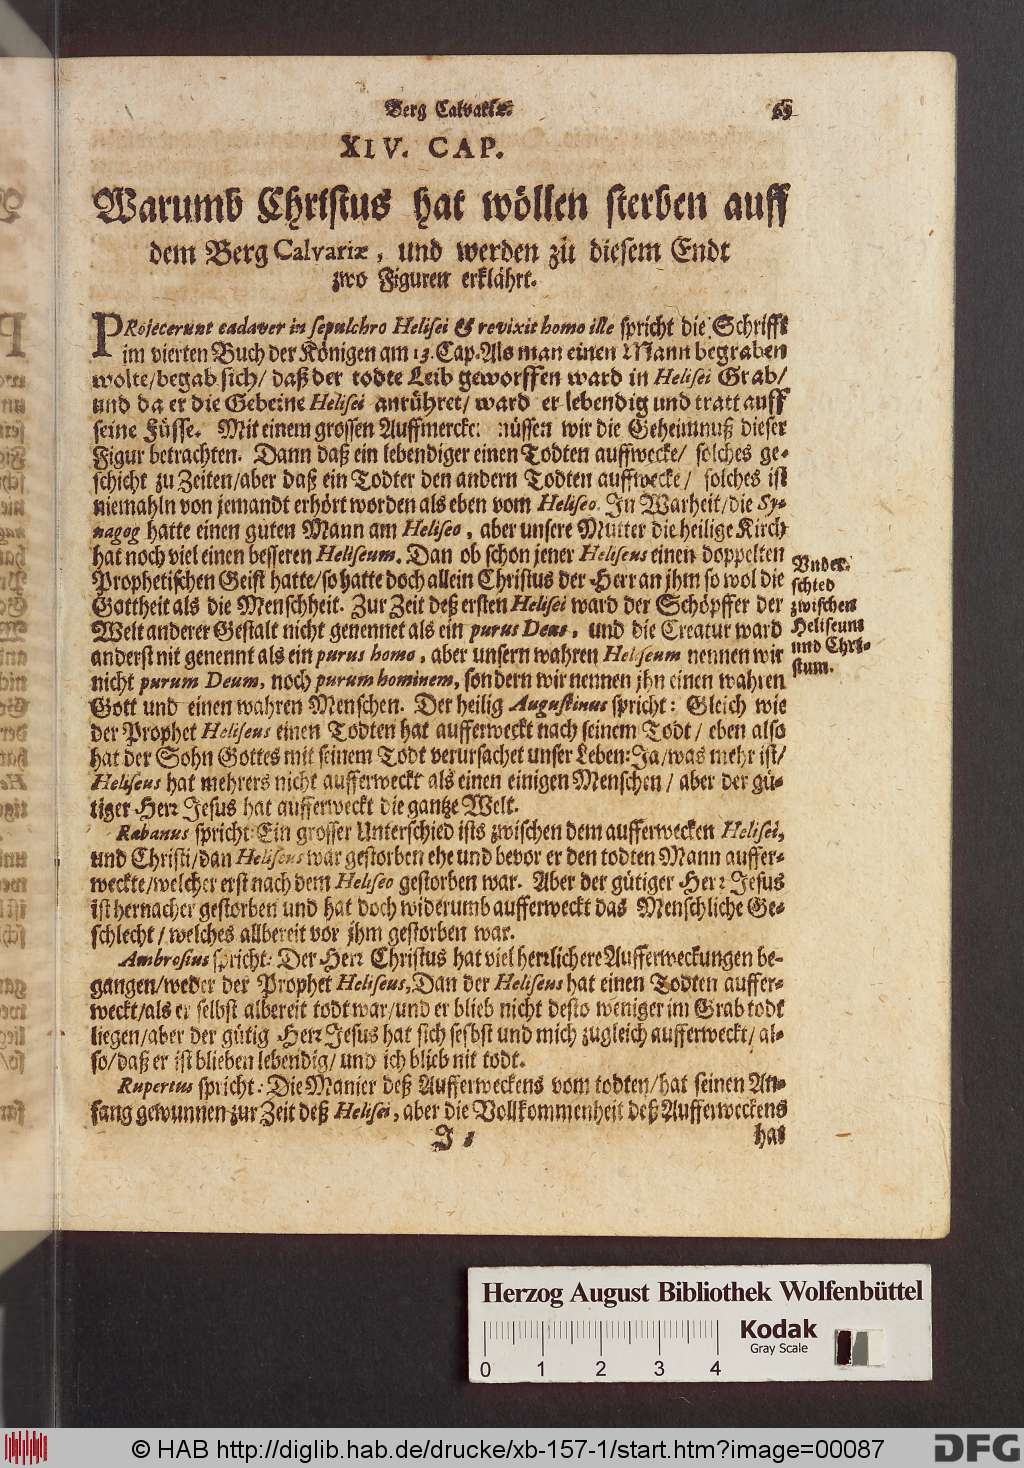 Berg Calvariæ. 69
XIV. CAP.
Warumb Christus hat wöllen sterben auff
dem Berg Calvariæ, und werden zu diesem Endt
zwo Figuren erklährt.
PRojecerunt cadaver in sepulchro Helisei & revixit homo ille spricht die Schrifft
im vierten Buch der Königen am 13. Cap. Als man einen Mann begraben
wolte/ begab sich/ daß der todte Leib geworffen ward in Helisei Grab/
und da er die Gebeine Helisei anrühret/ ward er lebendig und tratt auff
seine Füsse. Mit einem grossen Auffmercken müssen wir die Geheimnuß dieser
Figur betrachten. Dann daß ein lebendiger einen Todten auffwecke/ solches ge-
schicht zu Zeiten/ aber daß ein Todter den andern Todten auffwecke/ solches ist
niemahln von jemandt erhört worden als eben vom Heliseo. In Warheit/ die Sy-
nagog hatte einen guten Mann am Heliseo, aber unsere Mutter die heilige Kirch
hat noch viel einen besseren Heliseum. Dan ob schon jener Heliseus einen doppelten
Prophetischen Geist hatte/ so hatte doch allein Christus der Herr an jhm so wol die
Gottheit als die Menschheit. Zur Zeit deß ersten Helisei ward der Schöpffer der
Welt anderer Gestalt nicht genennet als ein purus Deus, und die Creatur ward
anderst nit genennt als ein purus homo, aber unsern wahren Heliseum nennen wir
nicht purum Deum, noch purum hominem, sondern wir nennen jhn einen wahren
Gott und einen wahren Menschen. Der heilig Augustinus spricht: Gleich wie
der Prophet Heliseus einen Todten hat aufferweckt nach seinem Todt/ eben also
hat der Sohn Gottes mit seinem Todt verursachet unser Leben: Ja/ was mehr ist/
Heliseus hat mehrers nicht aufferweckt als einen einigen Menschen/ aber der gü-
tiger Herr Jesus hat aufferweckt die gantze Welt.
Rabanus spricht: Ein grosser Unterschied ists zwischen dem aufferwecken Helisei,
und Christi/ dan Heliseus war gestorben ehe und bevor er den todten Mann auffer-
weckte/ welcher erst nach dem Heliseo gestorben war. Aber der gütiger Herr Jesus
ist hernacher gestorben und hat doch widerumb aufferweckt das Menschliche Ge-
schlecht/ welches allbereit vor jhm gestorben war.
Ambrosius spricht: Der Herr Christus hat viel herrlichere Aufferweckungen be-
gangen/ weder der Prophet Heliseus, Dan der Heliseus hat einen Todten auffer-
weckt/ als er selbst albereit todt war/ und er blieb nicht desto weniger im Grab todt
liegen/ aber der gütig Herr Jesus hat sich selbst und mich zugleich aufferweckt/ al-
so/ daß er ist blieben lebendig/ und ich blieb nit todt.
Rupertus spricht: Die Manier deß Aufferweckens vom todten/ hat seinen An-
fang gewunnen zur Zeit deß Helisei, aber die Vollkommenheit deß Aufferweckens
J hat
Under-
schied
zwischen
Heliseum
und Chri-
stum.
Herzog August Bibliothek Wolfenbüttel
Kodak
Gray Scale
0 1 2 3 4
© HAB http://diglib.hab.de/drucke/xb-157-1/start.htm?image=00087
DFG